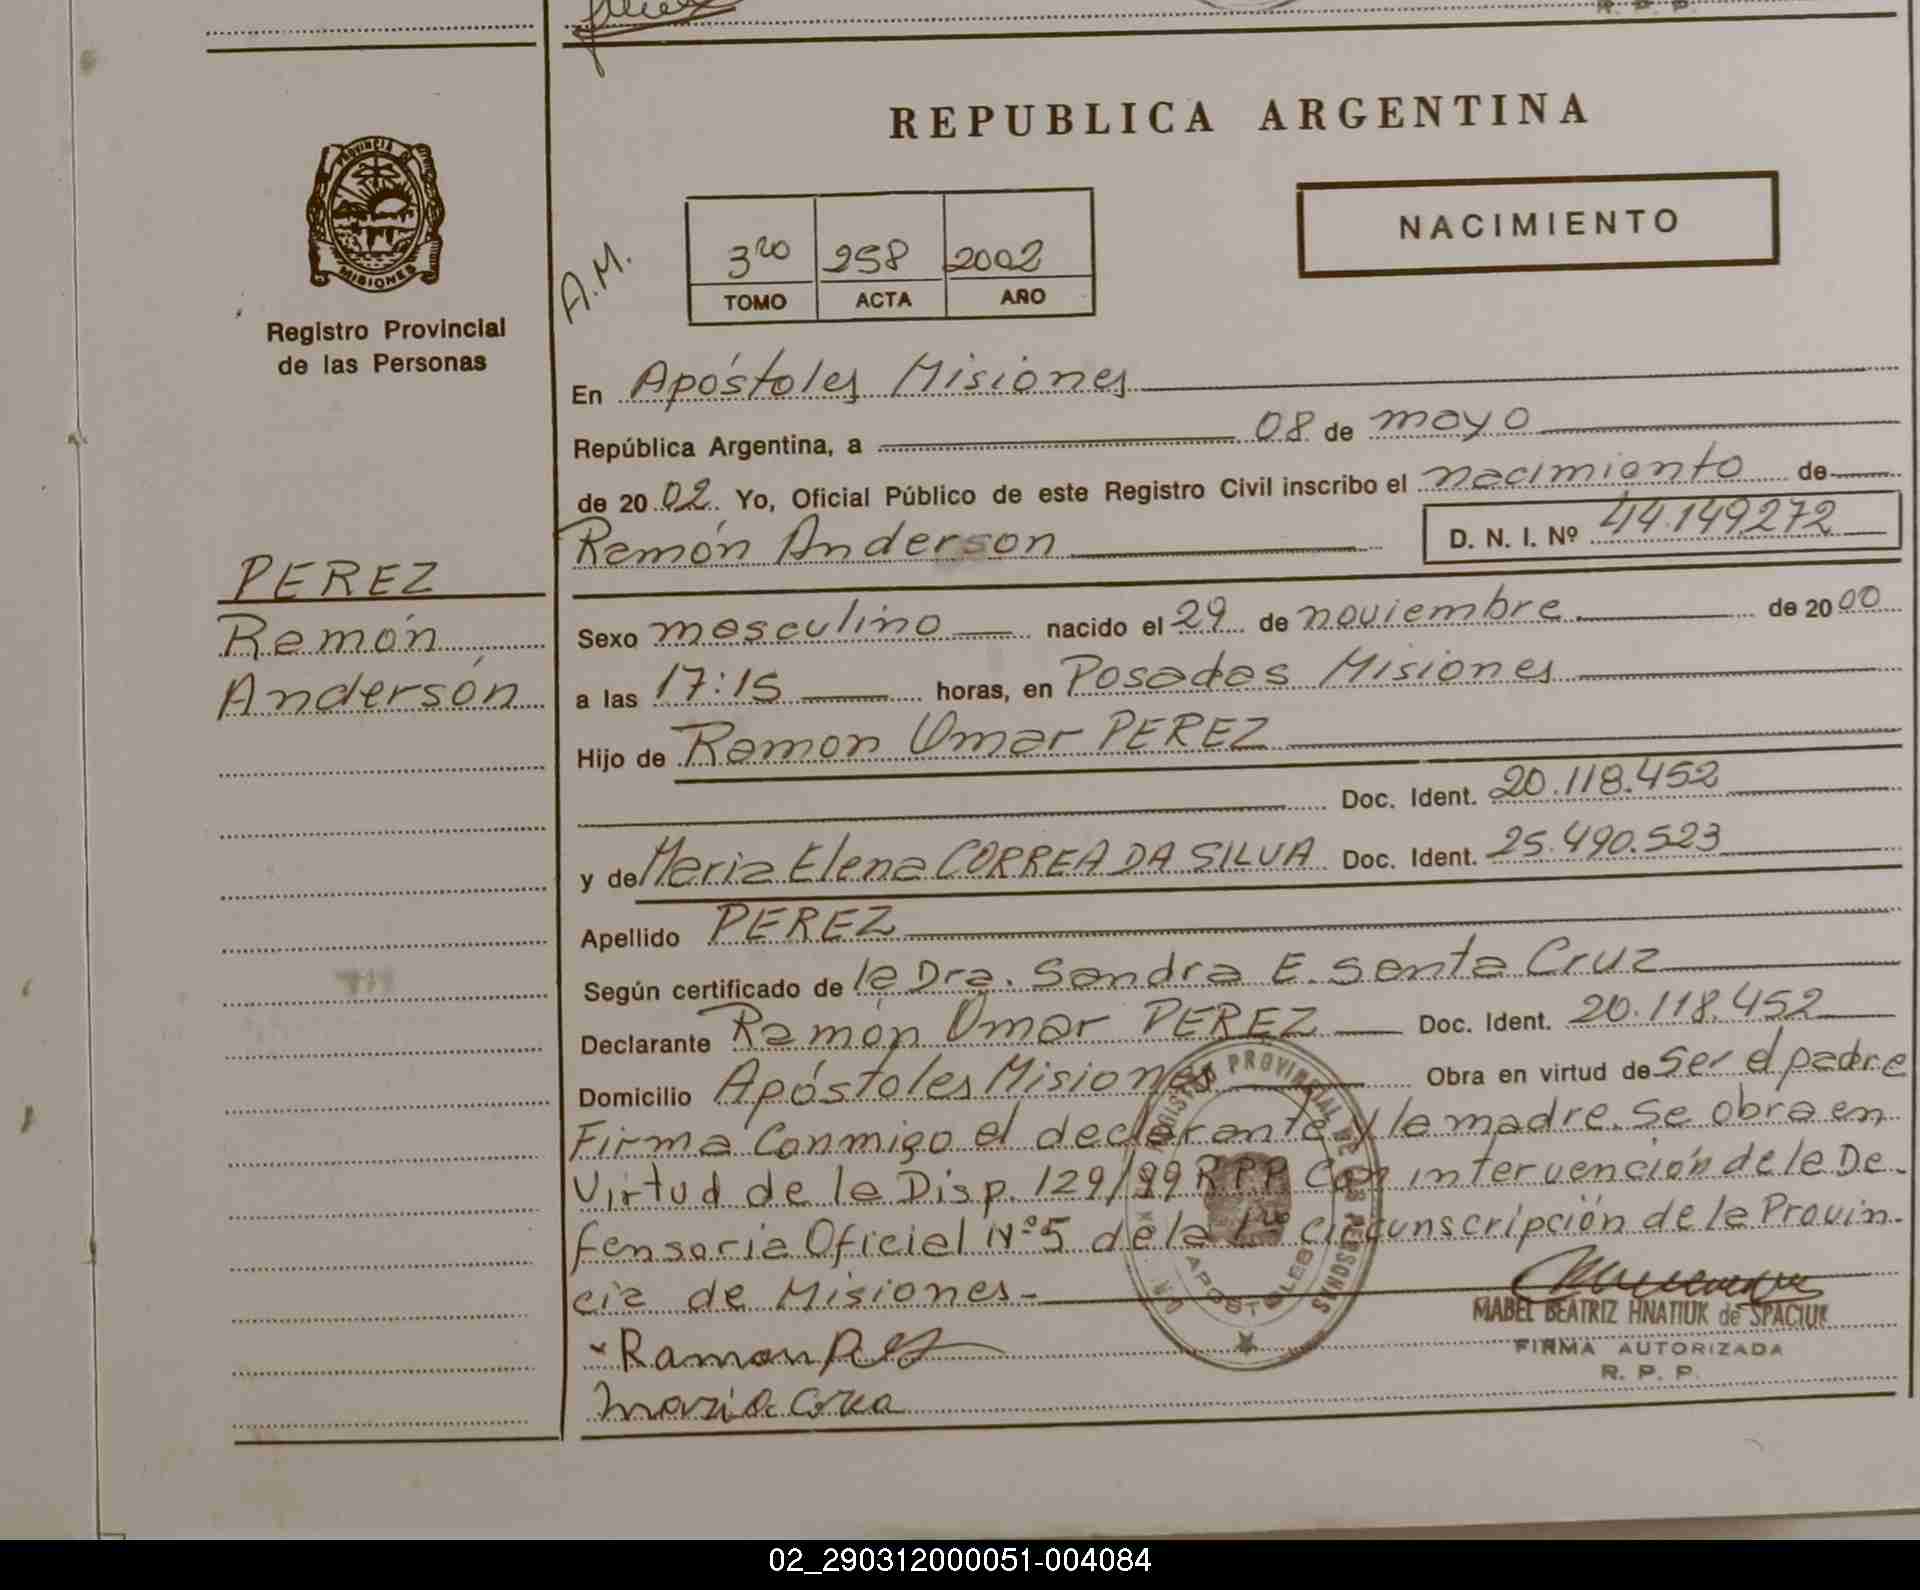 R. P. P.
REPUBLICA ARGENTINA
PROVINCIA DE
MISIONES
Registro Provincial
de las Personas
NACIMIENTO
A.M.
3ro 258 2002
TOMO ACTA AÑO
En Apóstoles Misiones
República Argentina, a 08 de mayo
de 20 02. Yo, Oficial Público de este Registro Civil inscribo el nacimiento de
Ramón Anderson D. N. I. Nº 44.149272
PEREZ
Ramón
Andersón
Sexo masculino nacido el 29 de noviembre de 20 00
a las 17:15 horas, en Posadas Misiones
Hijo de Ramon Omar PEREZ
Doc. Ident. 20.118.452
y de Maria Elena CORREA DA SILVA Doc. Ident. 25.490.523
Apellido PEREZ
Según certificado de la Dra. Sandra E. Santa Cruz
Declarante Ramón Omar PEREZ Doc. Ident. 20.118.452
Domicilio Apóstoles Misiones Obra en virtud de Ser el padre
Firma Conmigo el declarante y la madre. Se obra en
Virtud de la Disp. 129/99 R.P.P. Con intervención de la De-
fensoria Oficial Nº 5 de la 1ra circunscripción de la Provin-
cia de Misiones.-
REGISTRO PROVINCIAL DE LAS PERSONAS
APOSTOLES
MABEL BEATRIZ HNATIUK de SPACIUK
FIRMA AUTORIZADA
R. P. P.
Ramon
Maria
02_290312000051-004084